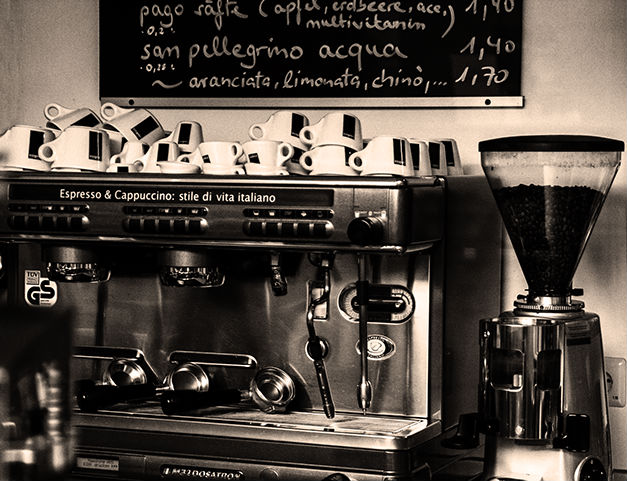 pago säfte (apfel, erdbeere, ace, 1,40
·0,2· multivitamin)
san pellegrino acqua 1,40
·0,25·
~ aranciata, limonata, chinò,... 1,70
Espresso & Cappuccino: stile di vita italiano
TÜV
GS